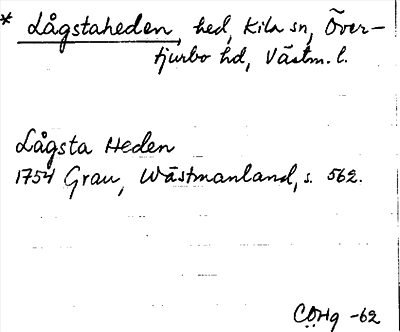 * Lågstaheden, hed, Kila sn, Över-
tjurbo hd, Västm. l.
Lågsta Heden
1754 Grau, Wästmanland, s. 562.
COHg -62